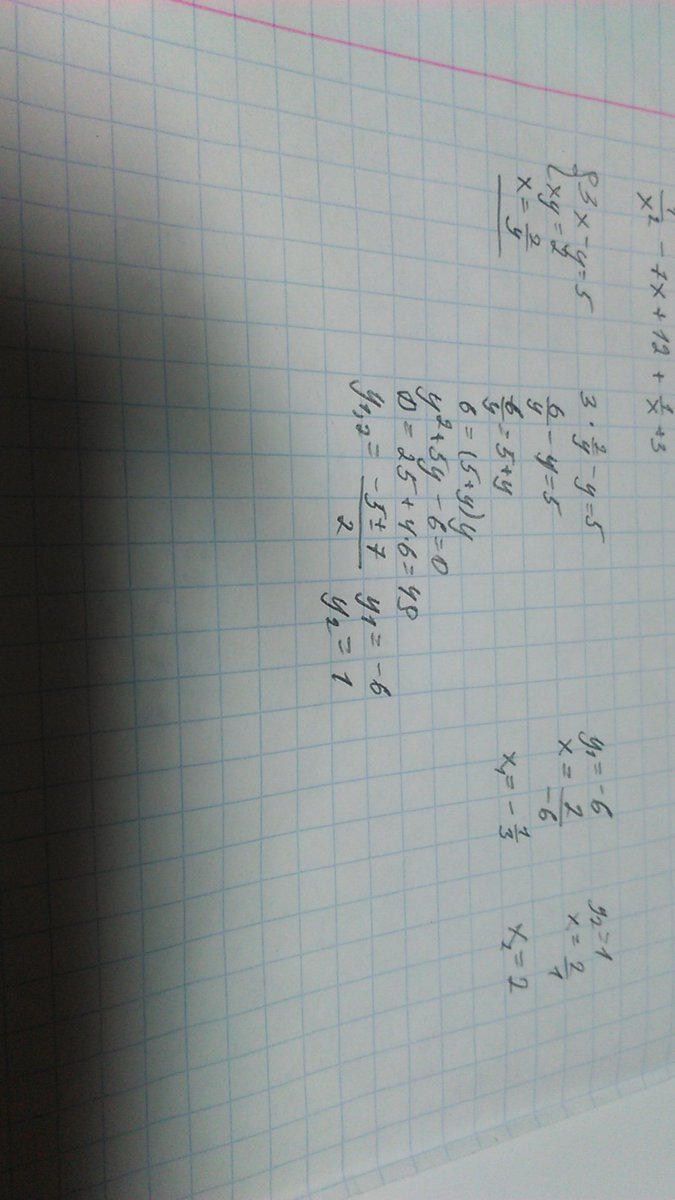 1/x² - 7x + 12 + 1/x + 3
{ 3x - y = 5
xy = 2
x = 2/y
3 · 2/y - y = 5
6/y - y = 5
6/y = 5 + y
6 = (5+y)y
y² + 5y - 6 = 0
D = 25 + 4·6 = 49
y1,2 = (-5 ± 7)/2 y1 = -6
y2 = 1
y1 = -6
x = 2/-6
x1 = -1/3
y2 = 1
x = 2/1
x2 = 2